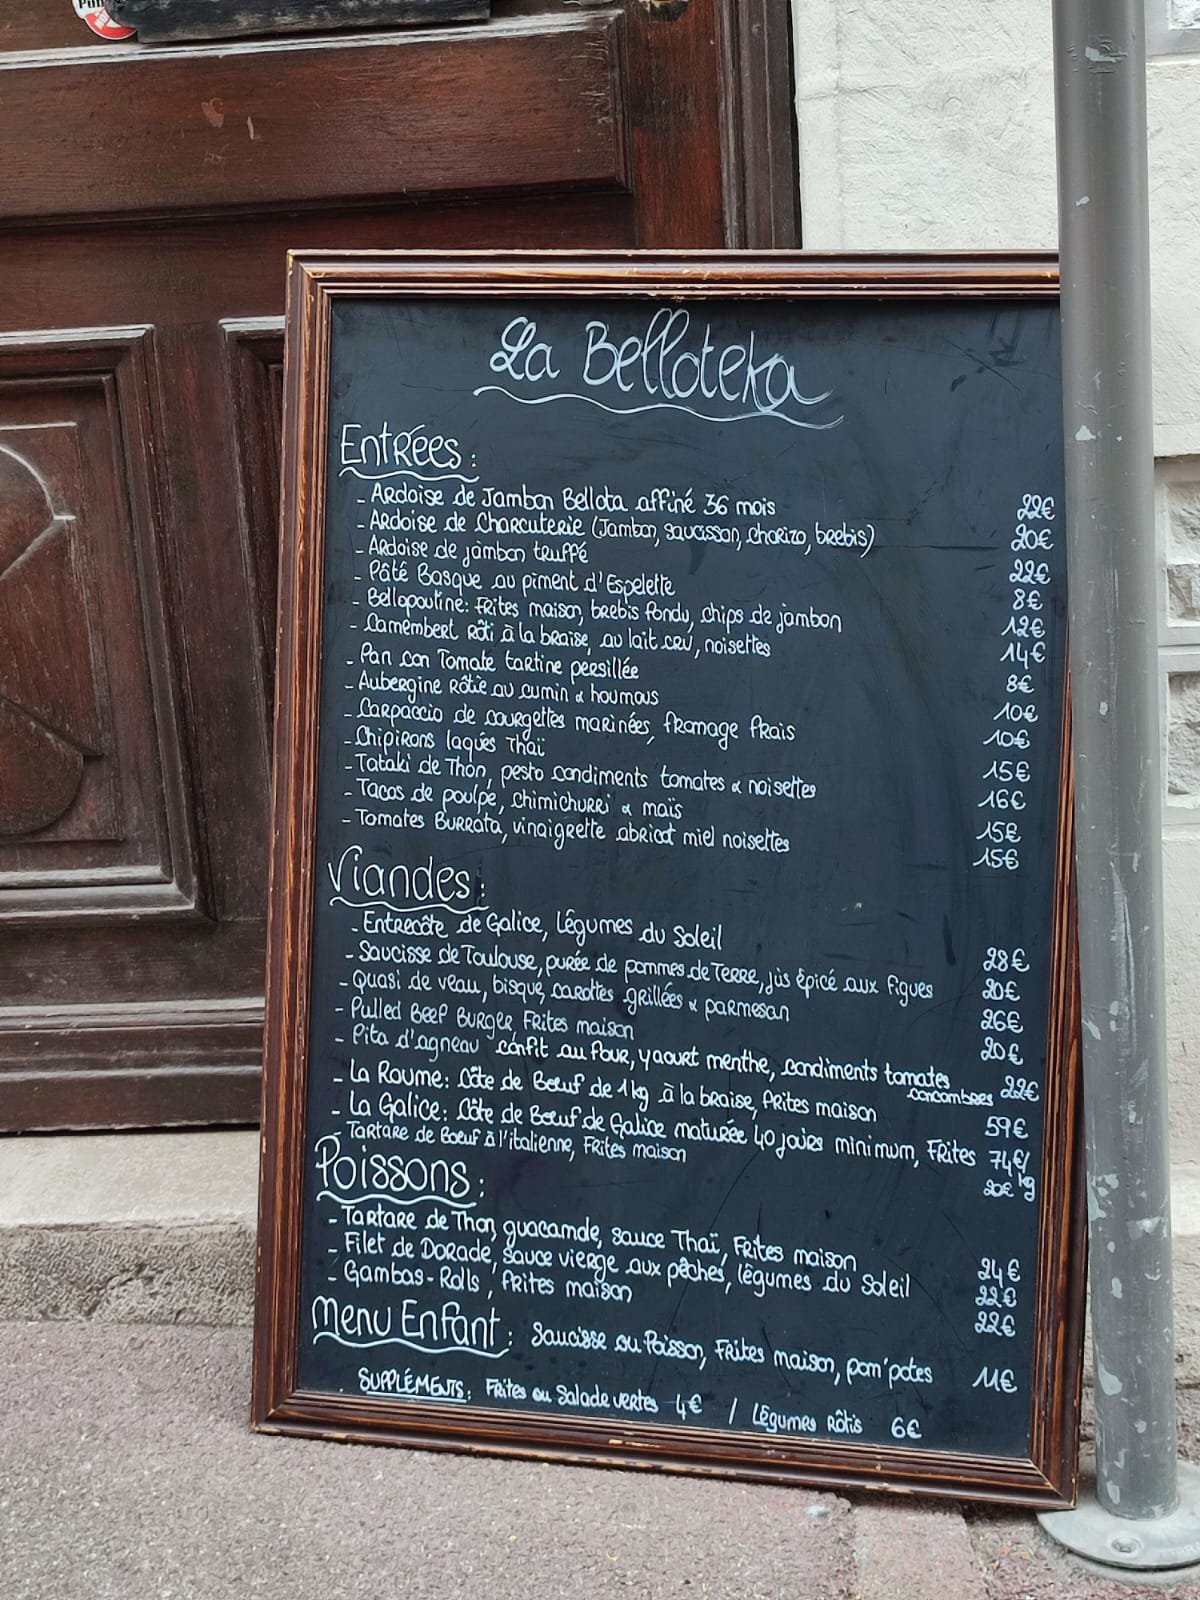 Pub
La Belloteka
Entrées :
- Ardoise de Jambon Bellota affiné 36 mois 22€
- Ardoise de Charcuterie (Jambon, saucisson, chorizo, brebis) 20€
- Ardoise de jambon truffé 22€
- Pâté Basque au piment d'Espelette 8€
- Bellopoutine: Frites maison, brebis fondu, chips de jambon 12€
- Camembert rôti à la braise, au lait cru, noisettes 14€
- Pan con Tomate tartine persillée 8€
- Aubergine rôtie au cumin & houmous 10€
- Carpaccio de courgettes marinées, fromage frais 10€
- Chipirons laqués Thaï 15€
- Tataki de Thon, pesto condiments tomates & noisettes 16€
- Tacos de poulpe, chimichurri & maïs 15€
- Tomates Burrata, vinaigrette abricot miel noisettes 15€
Viandes :
- Entrecôte de Galice, Légumes du Soleil 28€
- Saucisse de Toulouse, purée de pommes de Terre, jus épicé aux figues 20€
- Quasi de veau, bisque, carottes grillées & parmesan 26€
- Pulled Beef Burger, Frites maison 20€
- Pita d'agneau confit au four, yaourt menthe, condiments tomates 22€
concombres
- La Roume: Côte de Bœuf de 1kg à la braise, frites maison 59€
- La Galice: Côte de Bœuf de Galice maturée 40 jours minimum, Frites 74€/kg
- Tartare de Boeuf à l'italienne, Frites maison 20€
Poissons :
- Tartare de Thon, guacamole, sauce Thaï, Frites maison 24€
- Filet de Dorade, sauce vierge aux pêches, légumes du Soleil 22€
- Gambas-Rolls, frites maison 22€
Menu Enfant : Saucisse ou Poisson, Frites maison, pom'potes 11€
Suppléments : Frites ou Salade vertes 4€ / Légumes Rôtis 6€